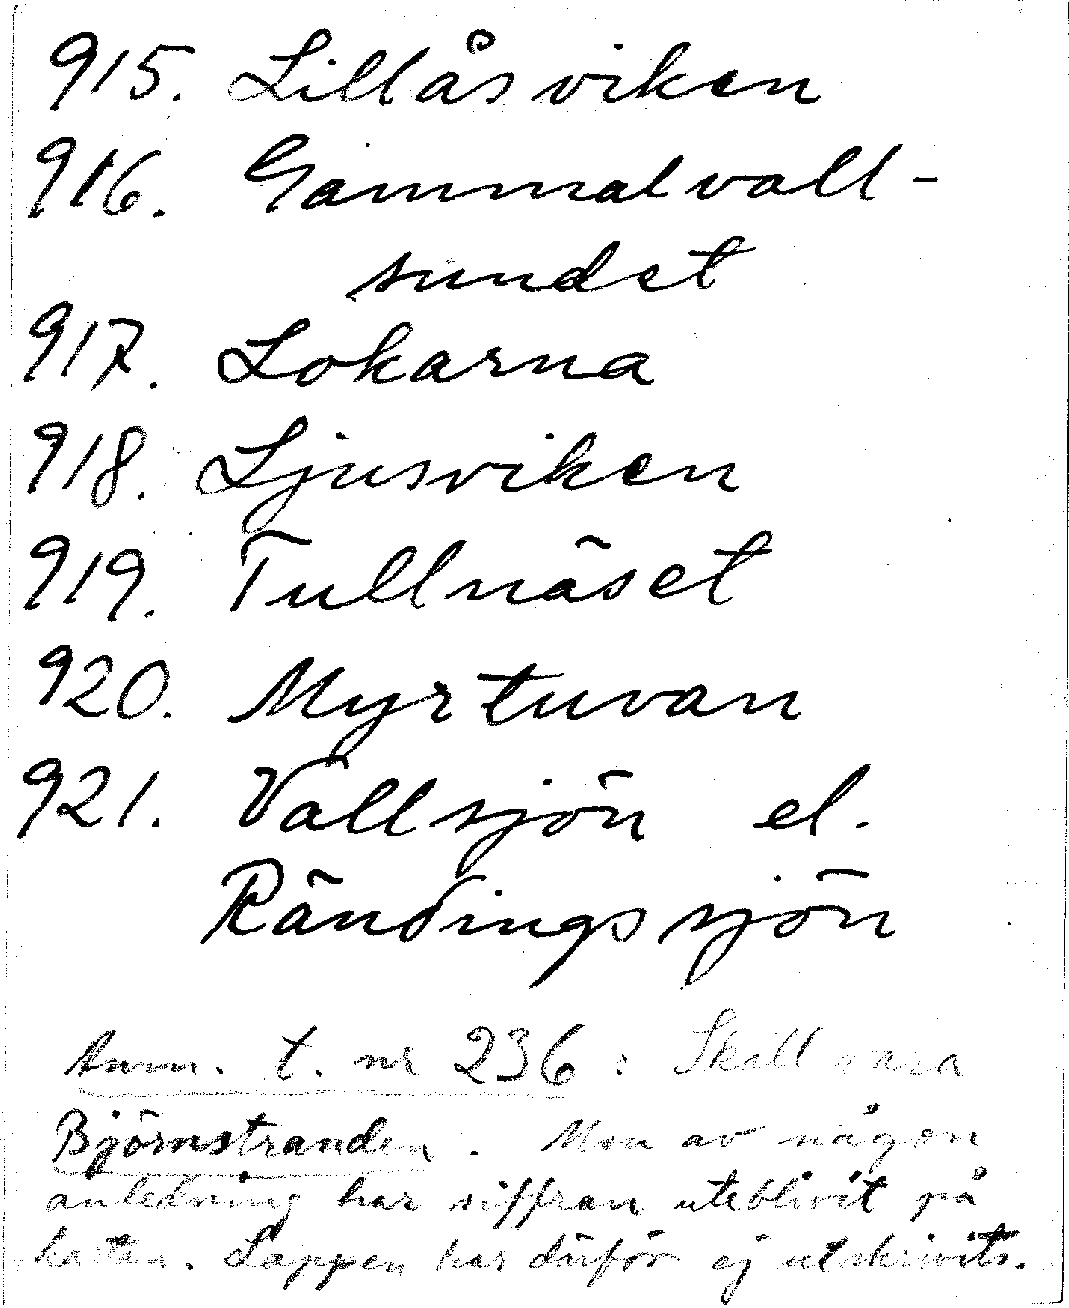 915. Lillåsviken
916. Gammalvall-
sundet
917. Lokarna
918. Ljusviken
919. Tullnäset
920. Myrtuvan
921. Vallsjön el.
Rändingssjön
Anm. t. nr 236: Skall vara
Björnstranden. Men av någon
anledning har siffran uteblivit på
kartan. Lappen har därför ej utskrivits.